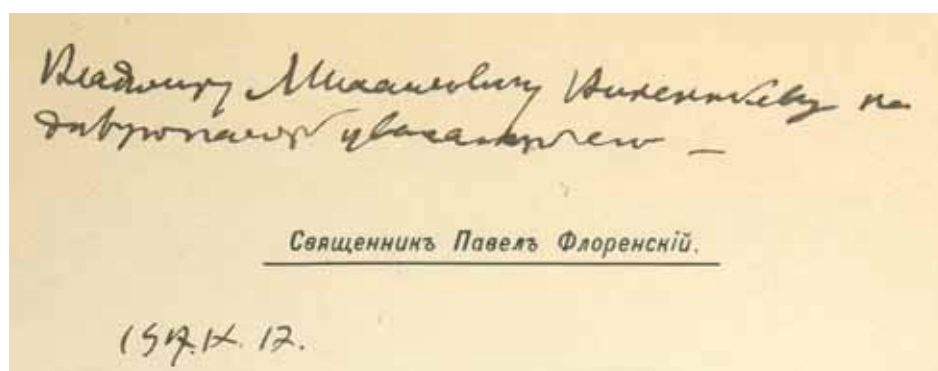 Владимиру Михаиловичу Викентьеву на
добрую память уважающего —
Священникъ Павелъ Флоренскій.
1917.IX.17.